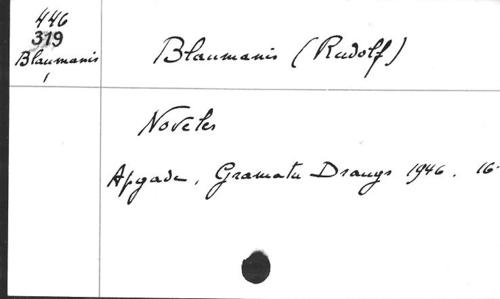 446
319
Blaumanis
1
Blaumanis (Rudolf)
Noveles
Apgads, Gramatu Draugs 1946. 16-